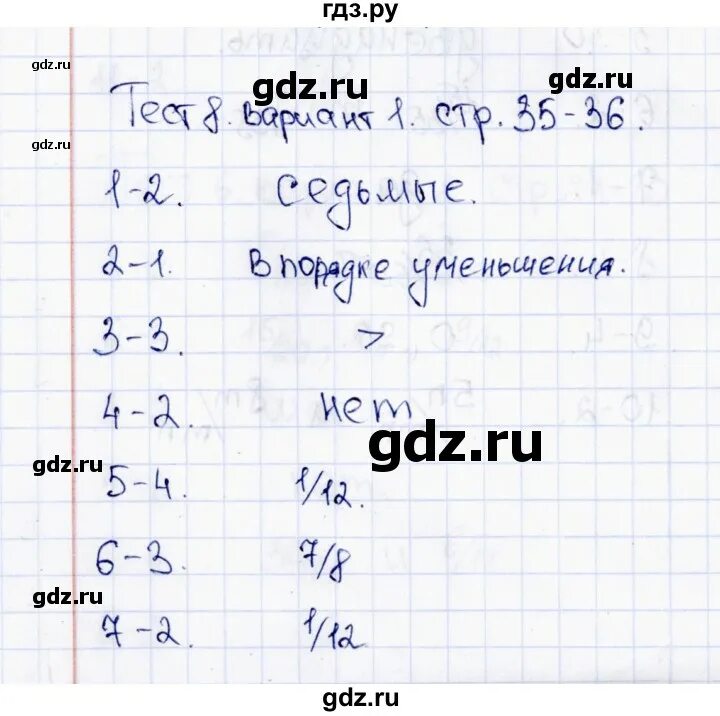 гдз.ру
gdz.ru
gdz.ru
gdz.ru
Тест 8. вариант 1. стр. 35-36.
gdz.ru
1-2. седьмые.
2-1. В порядке уменьшения.
3-3. >
4-2. нет
gdz.ru
gdz.ru
5-4. 1/12.
6-3. 7/8
gdz.ru
7-2. 1/12
gdz.ru